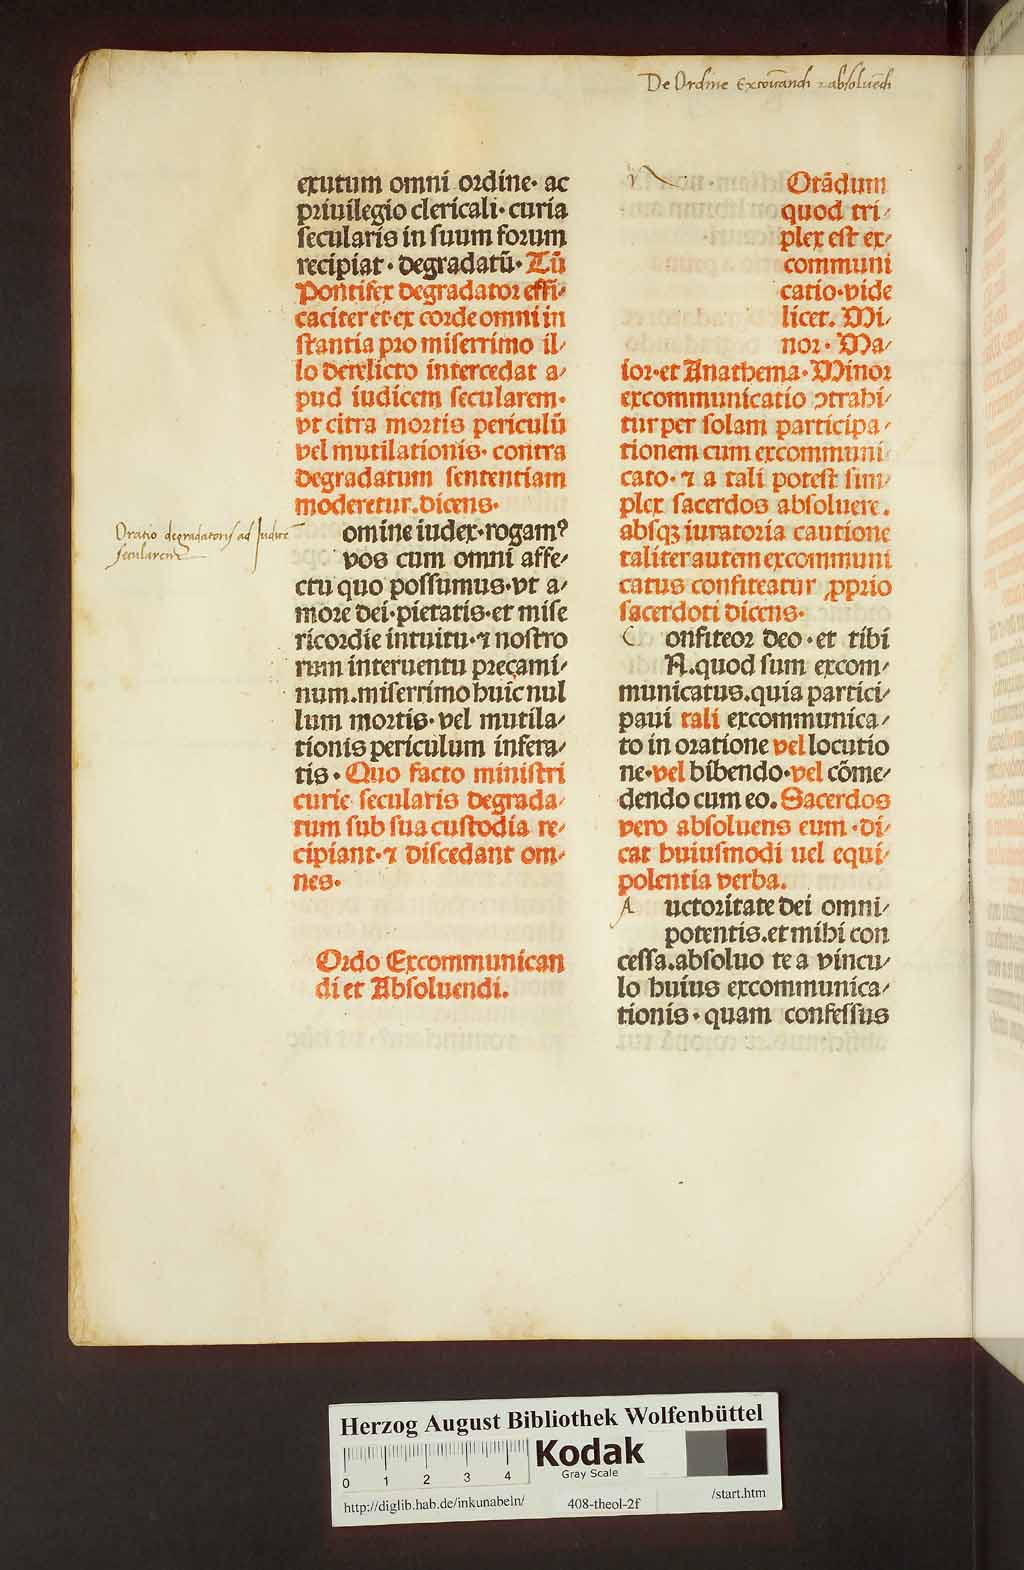 De Ordine Excoīcandi & absoluēdi
exutum omni ordine· ac
priuilegio clericali· curia
secularis in suum forum
recipiat· degradatū· Tū
Pontifex degradator effi⸗
caciter et·ex corde omni in
stantia pro miserrimo il⸗
lo derelicto intercedat a⸗
pud iudicem secularem·
vt citra mortis periculū
vel mutilationis· contra
degradatum sententiam
moderetur. dicens·
Oratio degradatoris ad Iudicē
secularem
omine iudex· rogam?
vos cum omni affe⸗
ctu quo possumus· vt a⸗
more dei· pietatis· et mise
ricordie intuitu· ⁊ nostro
rum interuentu precami⸗
num. miserrimo huic nul
lum mortis· vel mutila⸗
tionis periculum infera⸗
tis· Quo facto ministri
curie secularis degrada⸗
tum sub sua custodia re⸗
cipiant· ⁊ discedant om⸗
nes·
Ordo Excommunican
di et Absoluendi.
N Otādum
quod tri⸗
plex est ex⸗
communi
catio· vide
licet. Mi⸗
nor· Ma⸗
ior· et Anathema· Minor
excommunicatio ↄtrahi⸗
tur per solam participa⸗
tionem cum excommuni⸗
cato· ⁊ a tali potest sim⸗
plex sacerdos absoluere.
absqꝫ iuratoria cautione
taliter autem excommuni
catus confiteatur ꝓprio
sacerdoti dicens·
C onfiteor deo· et tibi
N. quod sum excom⸗
municatus. quia partici⸗
paui tali excommunica⸗
to in oratione vel locutio
ne· vel bibendo· vel cōme⸗
dendo cum eo. Sacerdos
vero absoluens eum· di⸗
cat huiusmodi uel equi⸗
polentia verba.
A uctoritate dei omni⸗
potentis. et mihi con
cessa. absoluo te a vincu⸗
lo huius excommunica⸗
tionis· quam confessus
Herzog August Bibliothek Wolfenbüttel
Kodak
Gray Scale
0 1 2 3 4
http://diglib.hab.de/inkunabeln/ 408-theol-2f /start.htm